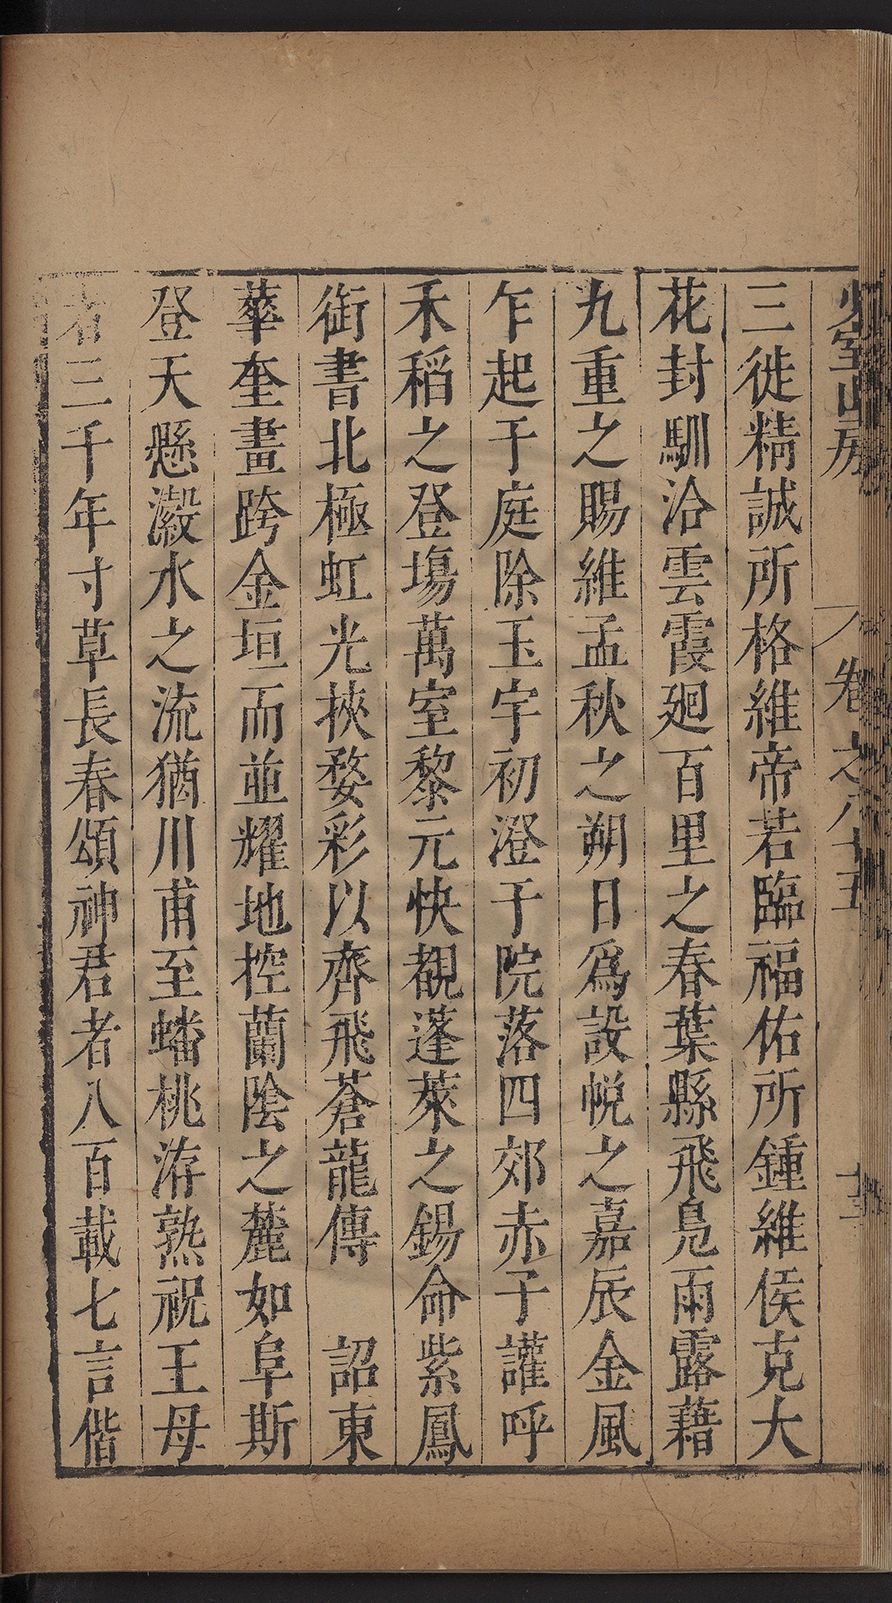 少室山房
卷之八十五
十三
三徙精誠所格維帝若臨福佑所鍾維侯克大
花封馴洽雲霞廻百里之春葉縣飛鳬雨露藉
九重之賜維孟秋之朔日爲設帨之嘉辰金風
乍起于庭除玉宇初澄于院落四郊赤子讙呼
禾稻之登塲萬室黎元快覩蓬萊之錫命紫鳳
銜書北極虹光挾婺彩以齊飛蒼龍傳　詔東
華奎畫跨金垣而並耀地控蘭陰之麓如阜斯
登天懸瀫水之流猶川甫至蟠桃洊熟祝王母
者三千年寸草長春頌神君者八百載七言偕